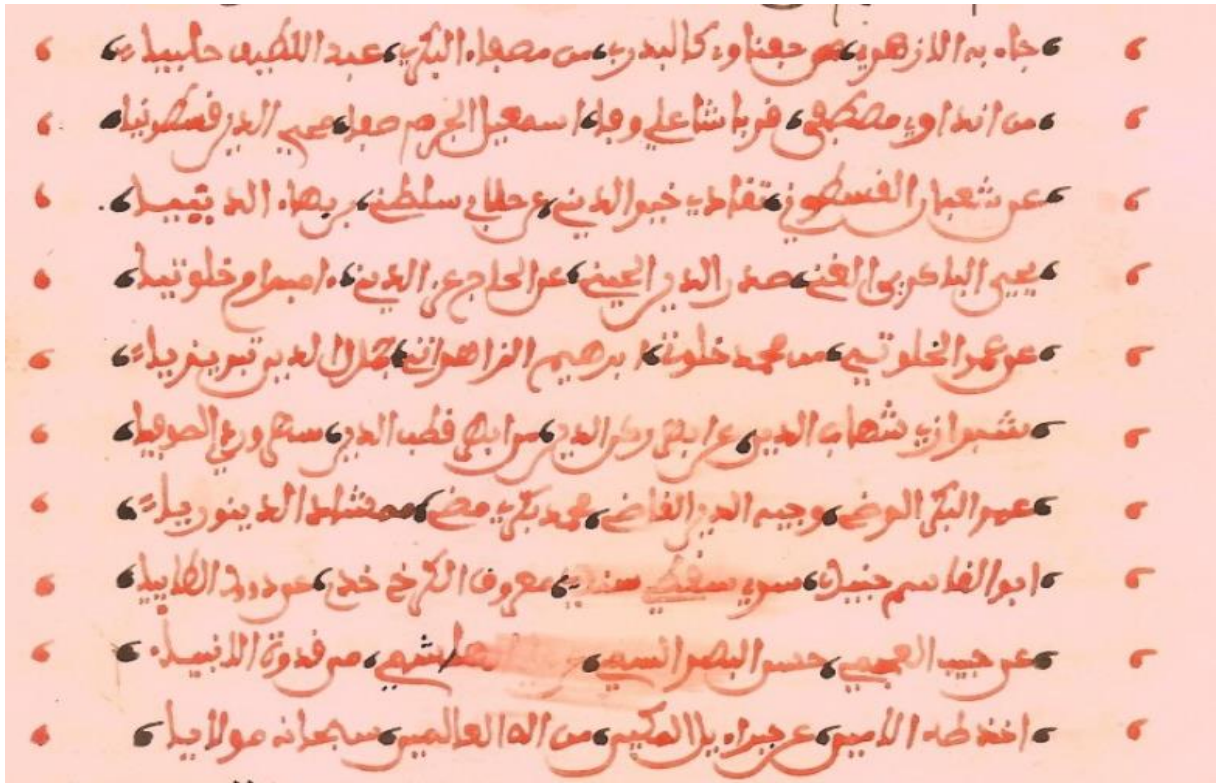 جاء به الازهري من حفناوي كالبدري من مصطفاه البكري عبد اللطيف حلبيا
من افنداوي مصطفى قرباشا علي وفا اسمعيل الجرم صفا محيي الدين قسطمونيا
عن شعبان القسطموني خير الدين عن حلبي سلطني بهاء الدين
يحيى الباكربى الغني صدر الدين عن الحاج عز الدين امبرام خلوتيا
عن عمر الخلوتي من محمد خلوتي ابرهيم الزاهداني جمال الدين تبريزيا
شيرازي شهاب الدين عن ابهري ركن الدين من ابهي قطب الدين سهروردي الصوفيا
عمر البكري الرضي وجيه الدين القاضي محمد بكري مضي ممشاد الدينوريا
ابو القاسم جنيدي سري سقطي سندي معروف الكرخي خدي عن داود الطاييا
عن حبيب العجمي حسن البصر السمي هاشمي من قدوة الانبيا
اخذ طه الامين عن جبراءيل المكين من اله العالمين سبحانه مولانيا